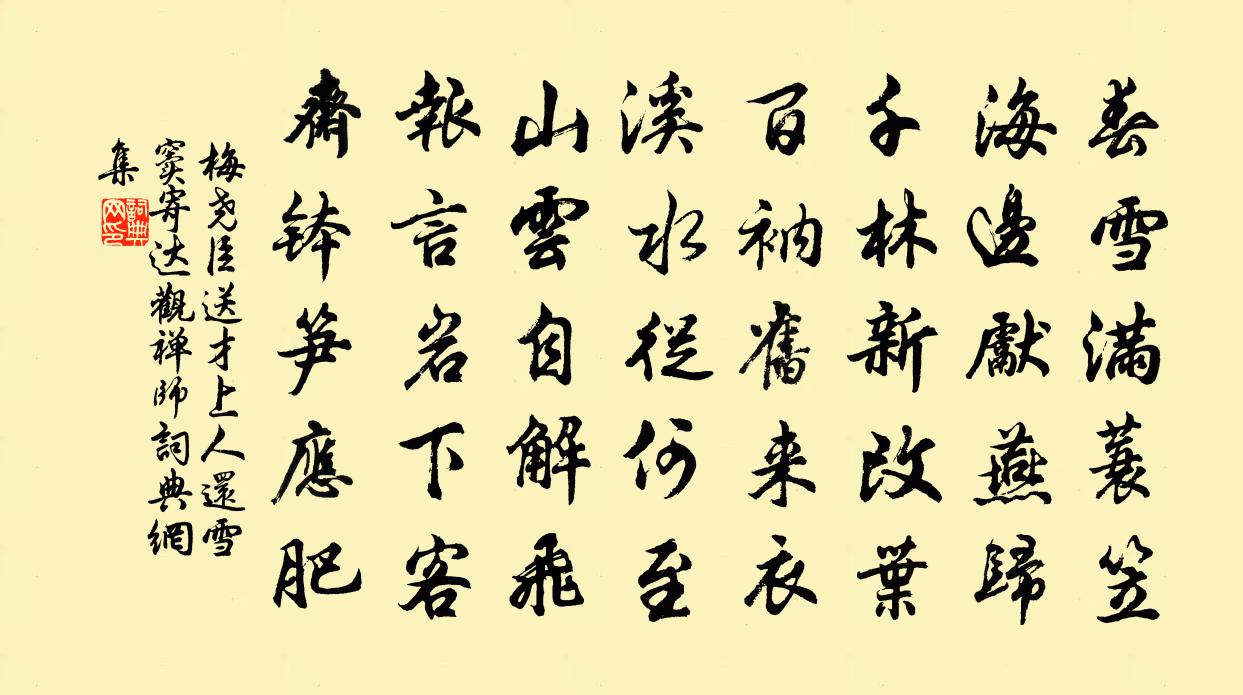 春雪滿蓑笠
海邊獻燕歸
千林新改葉
百衲舊来衣
溪水從何至
山雲自解飛
報言岩下客
齋鉢笋應肥
梅尧臣送才上人還雪
窦寄达觀禅師詞典網
集
詞典
网印